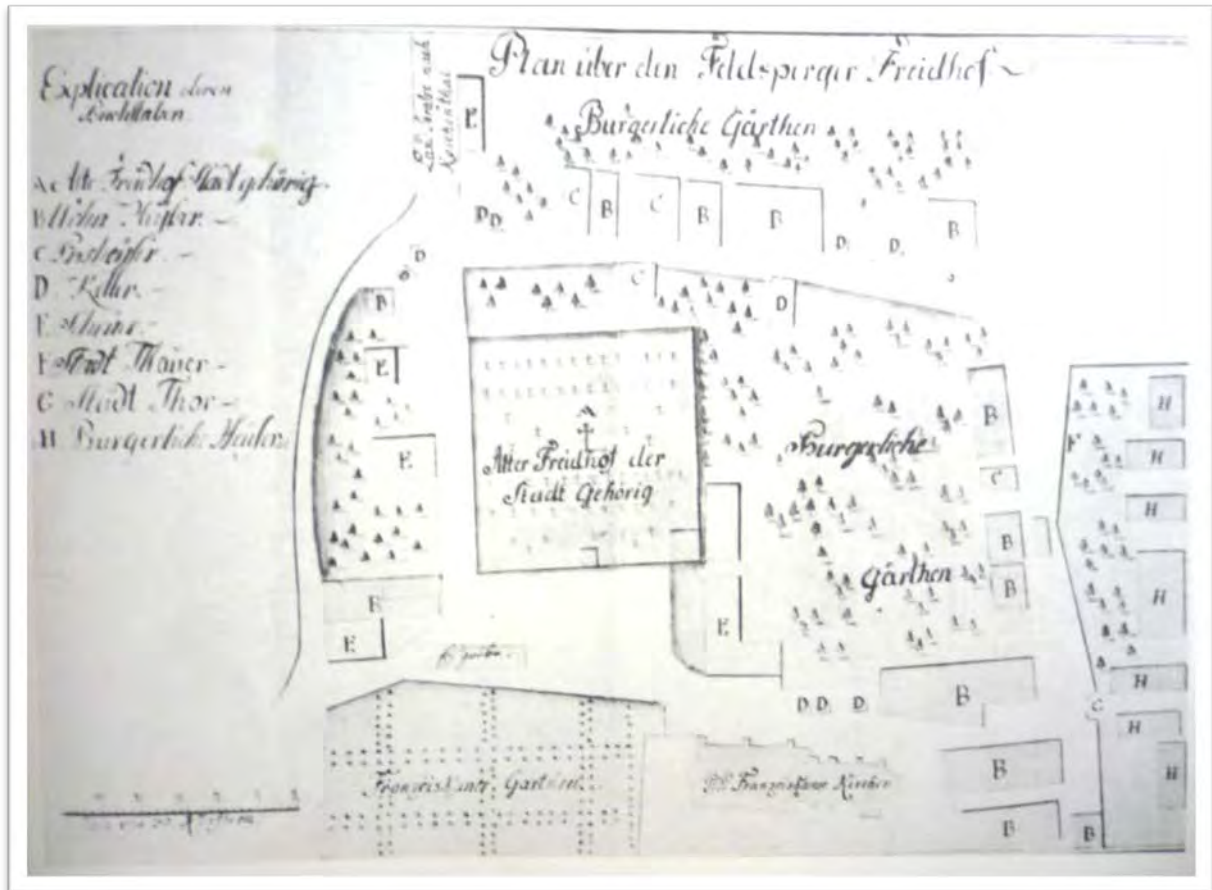 Plan über den Feldsperger Freidhof
Explication deren
Buchstaben
A Alte Freidhof Stadt gehörig
B
C
D. Keller.
E
F Stadt Mauer
G Stadt Thor
H Burgerliche Heuser
Burgerliche Gärthen
E
D D
C
B
C
B
B
D.
D.
B
D
B
C
D
E
E
Alter Freidhof der
Stadt Gehörig
Burgerliche
Gärthen
B
C
B
B
F
H
H
H
H
H
H
H
B
E
E
D D. D
B
G
B
B
B
Franciskaner Garthen
PP. Franciskaner Kirchen